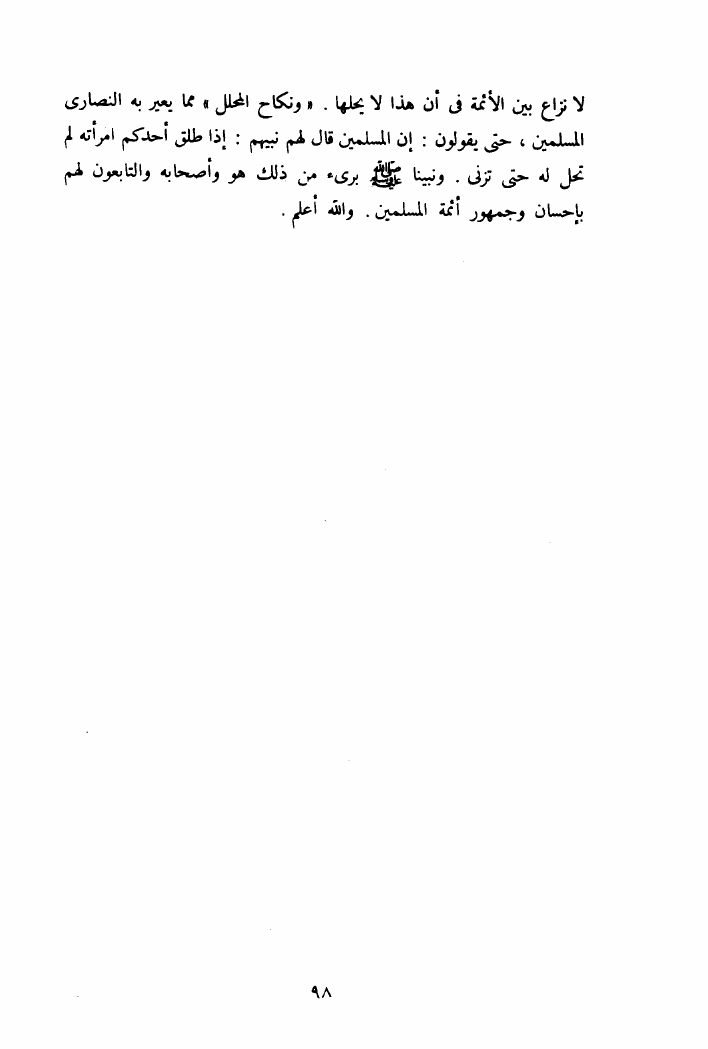 لا نزاع بين الأئمة فى أن هذا لا يحلها . « ونكاح المحلل » مما يعير به النصارى
المسلمين ، حتى يقولون : إن المسلمين قال لهم نبيهم : إذا طلق أحدكم امرأته لم
تحل له حتى تزنى . ونبينا ﷺ برىء من ذلك هو وأصحابه والتابعون لهم
بإحسان وجمهور أئمة المسلمين . والله أعلم .
٩٨